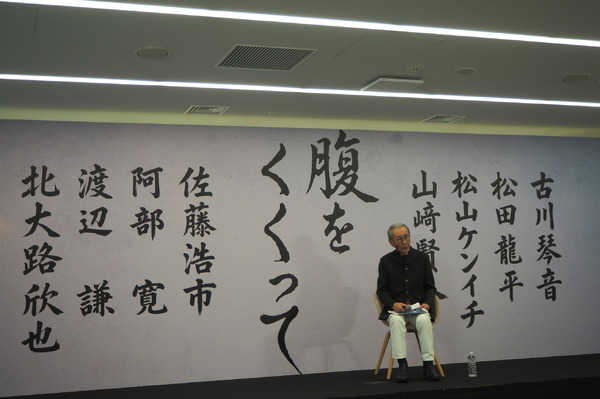 古川琴音
松田龍平
松山ケンイチ
山﨑賢
腹を
くくって
佐藤浩市
阿部 寛
渡辺 謙
北大路欣也